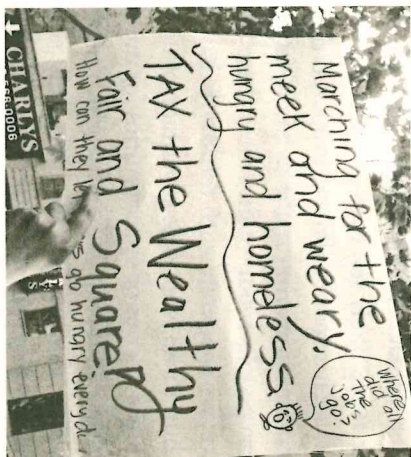 Marching for the
meek and weary,
hungry and homeless
Where
did all
the
Jobs
go?
TAX the Wealthy
Fair and Square!
How can they go hungry every
CHARLYS
0006